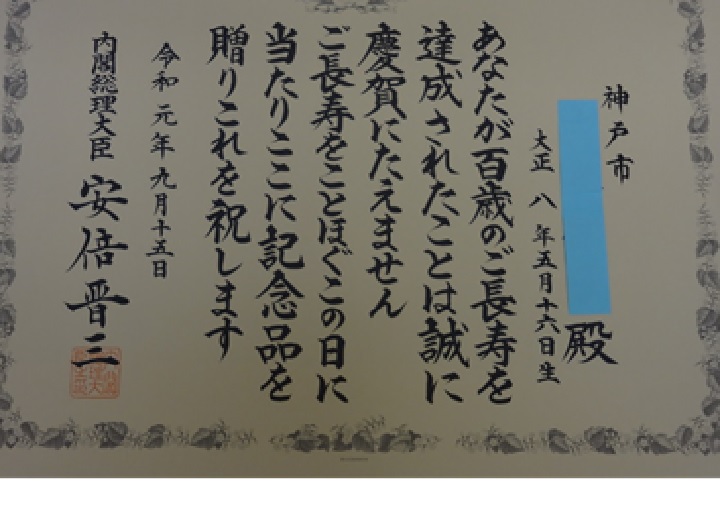 神戸市
殿
大正 八 年五月十六日生
あなたが百歳のご長寿を
達成されたことは誠に
慶賀にたえません
ご長寿をことほぐこの日に
当たりここに記念品を
贈りこれを祝します
令和 元年 九月十五日
内閣総理大臣 安倍晋三